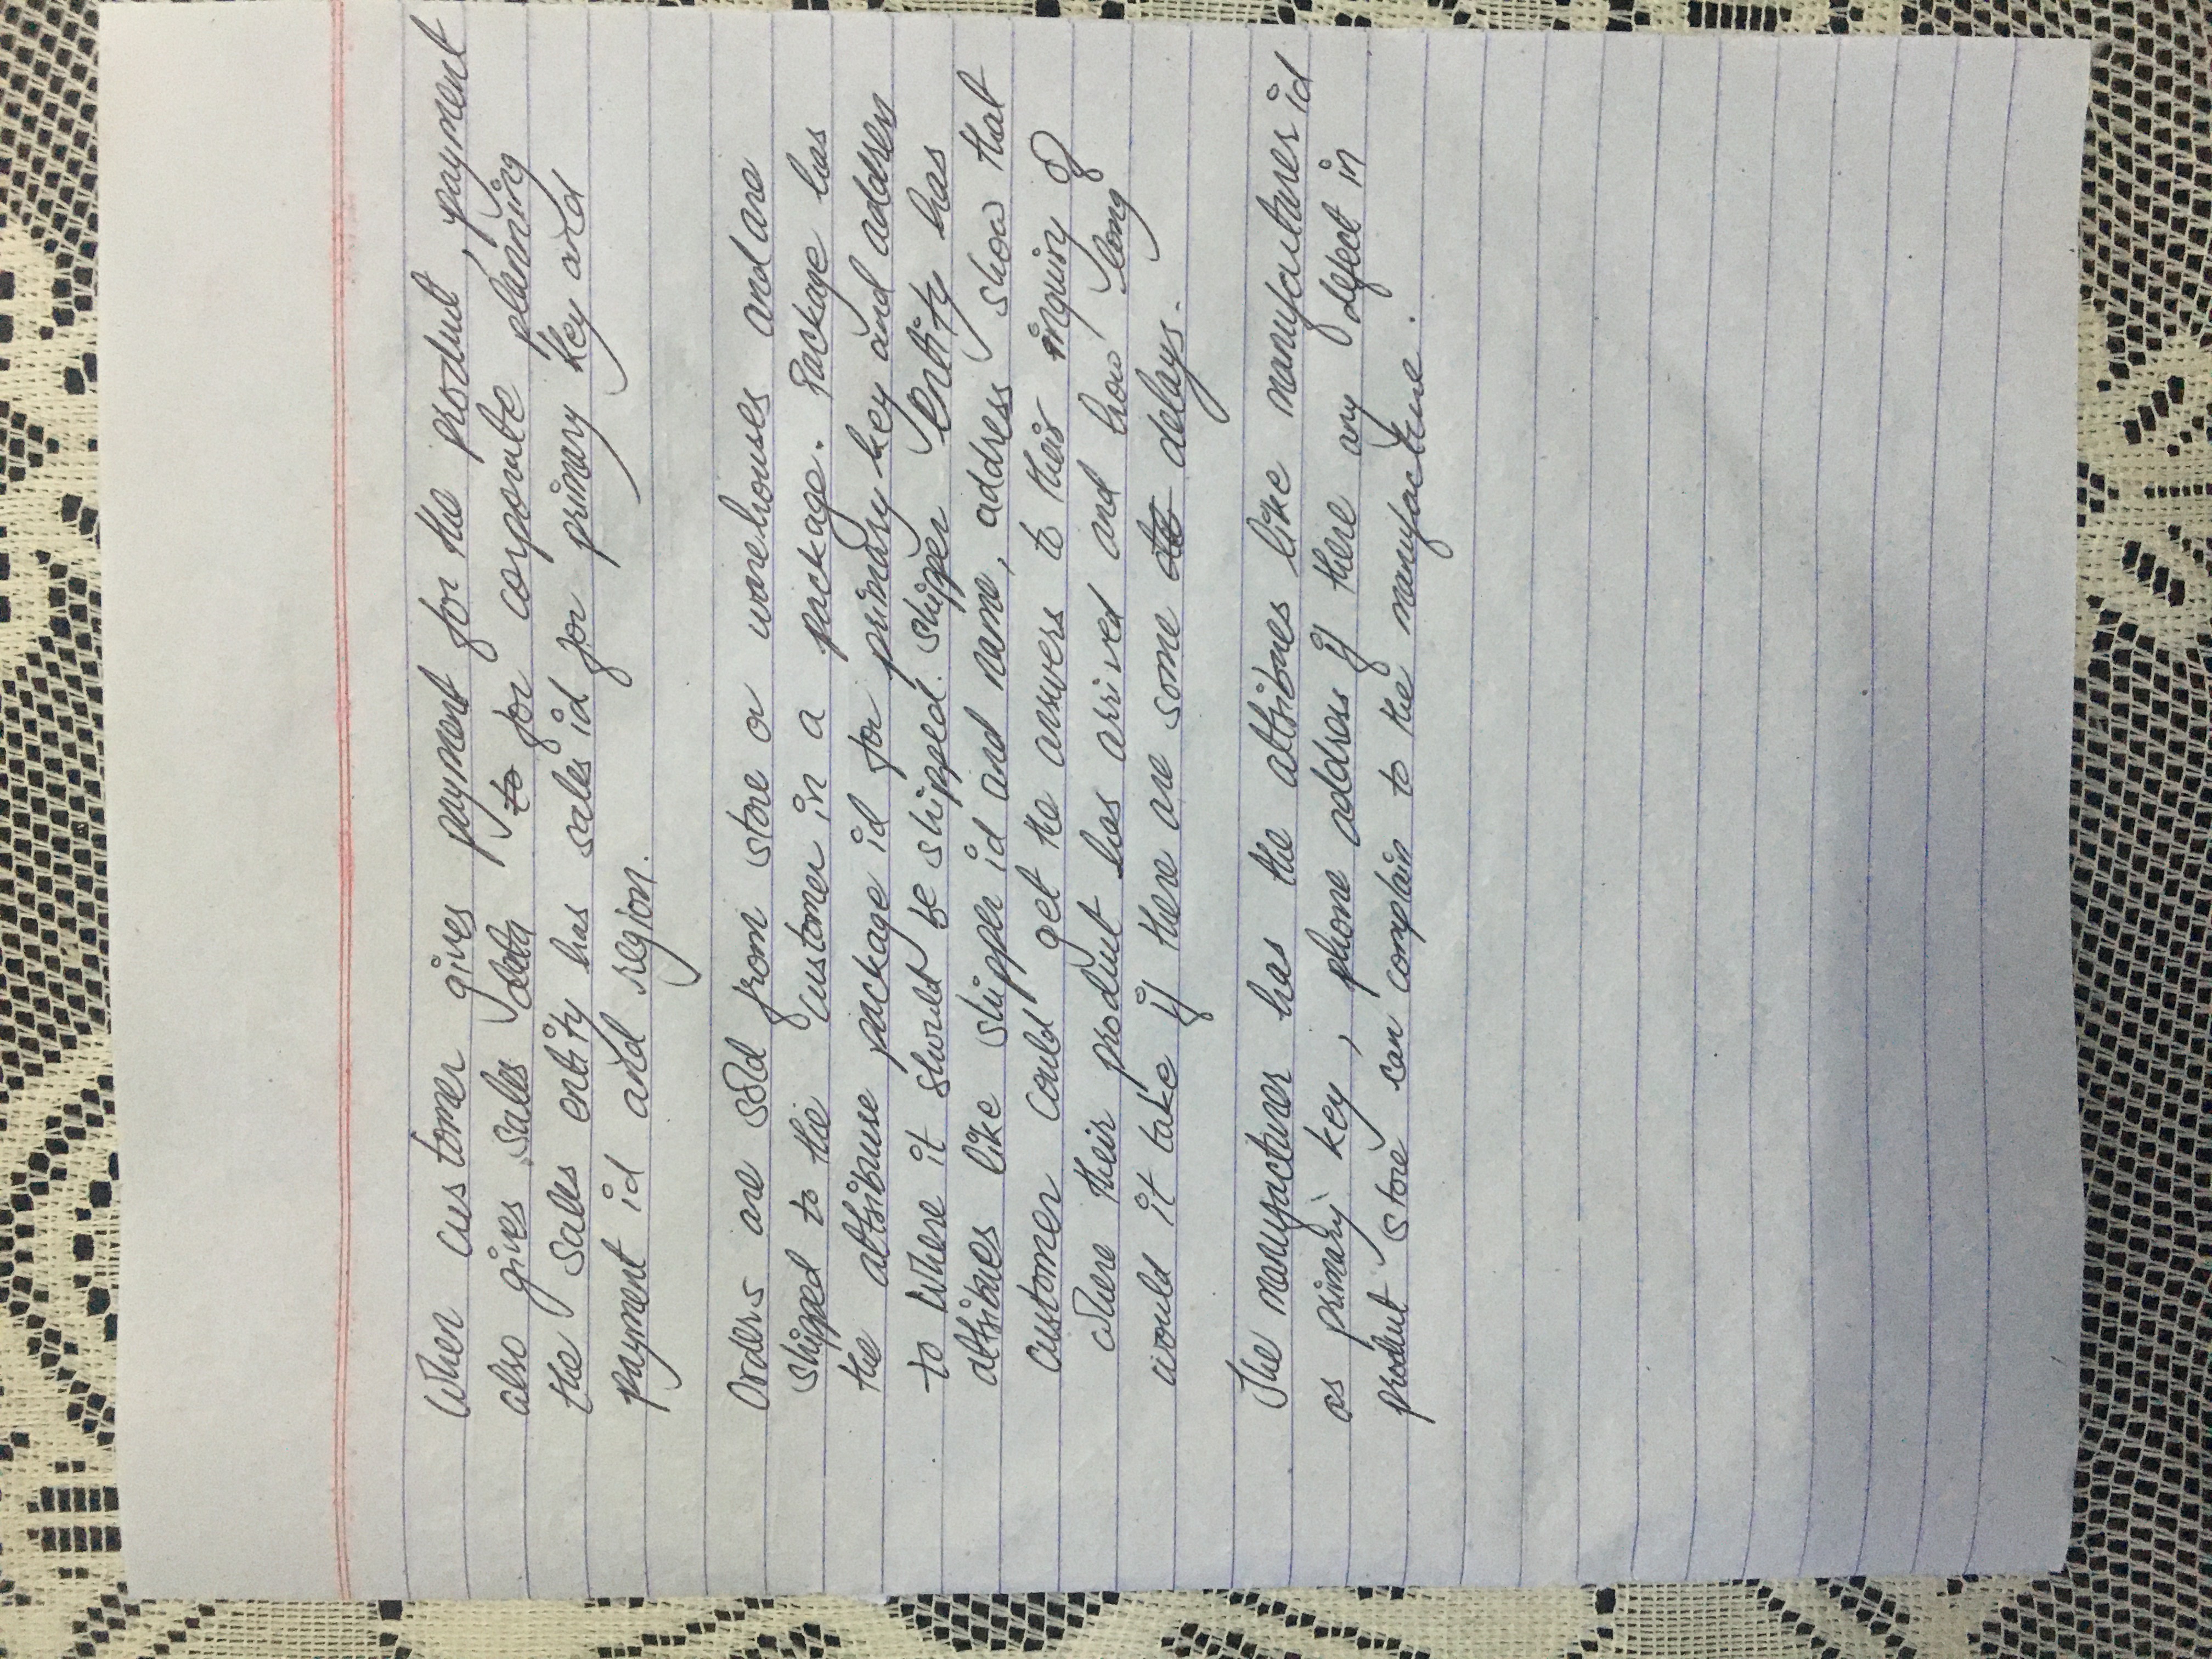 When customer gives payment for the product, payment
also gives sales data to for corporate planning
the sales entity has sales id for primary key and
payment id and region.
Orders are sold from store or warehouses and are
shipped to the customer in a package. Package has
the attribuue package id for primary key and address
to where it should be shipped. shipper entity has
attribues like shipper id and name, address show that
customer could get the answers to their inquiry of
where their product has arrived and how long
would it take if there are some the delays.
The manufacturer has the attribues like manufacturer id
as primary key, phone address if there any defect in
product store can complain to the manufacture.